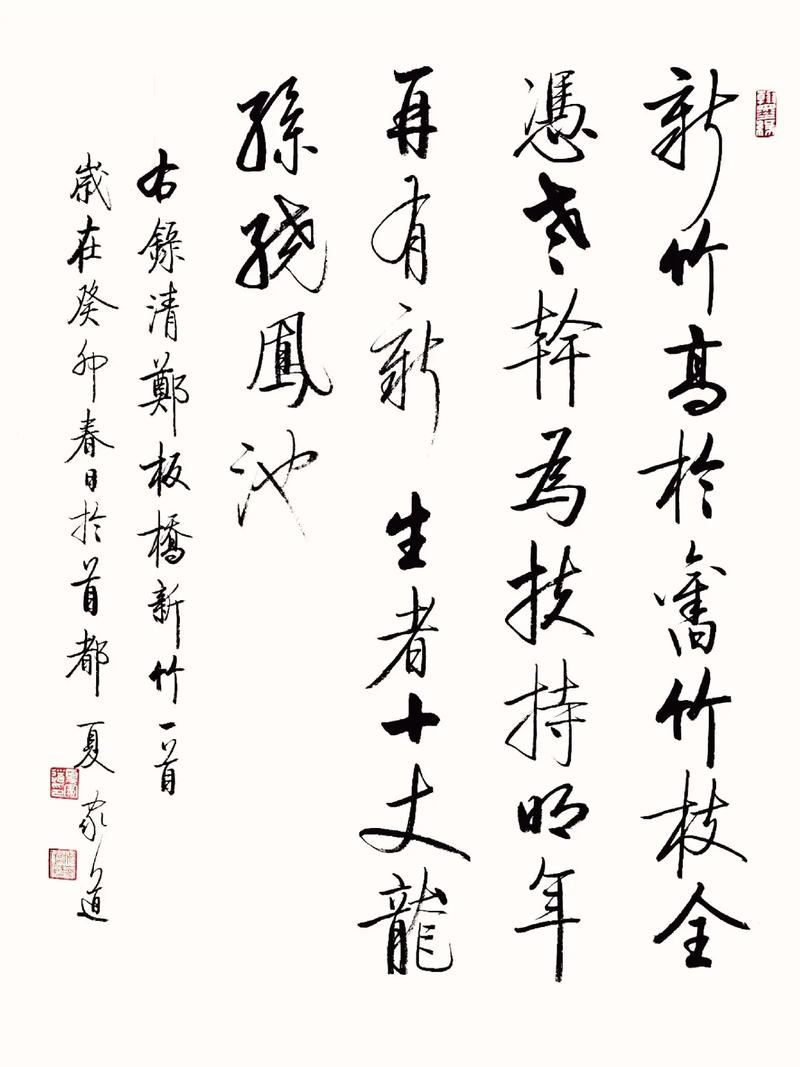 新竹高於舊竹枝全
憑老幹為扶持明年
再有新生者十丈龍
孫繞鳳池
右錄清鄭板橋新竹一首
歲在癸卯春日於首都夏家道